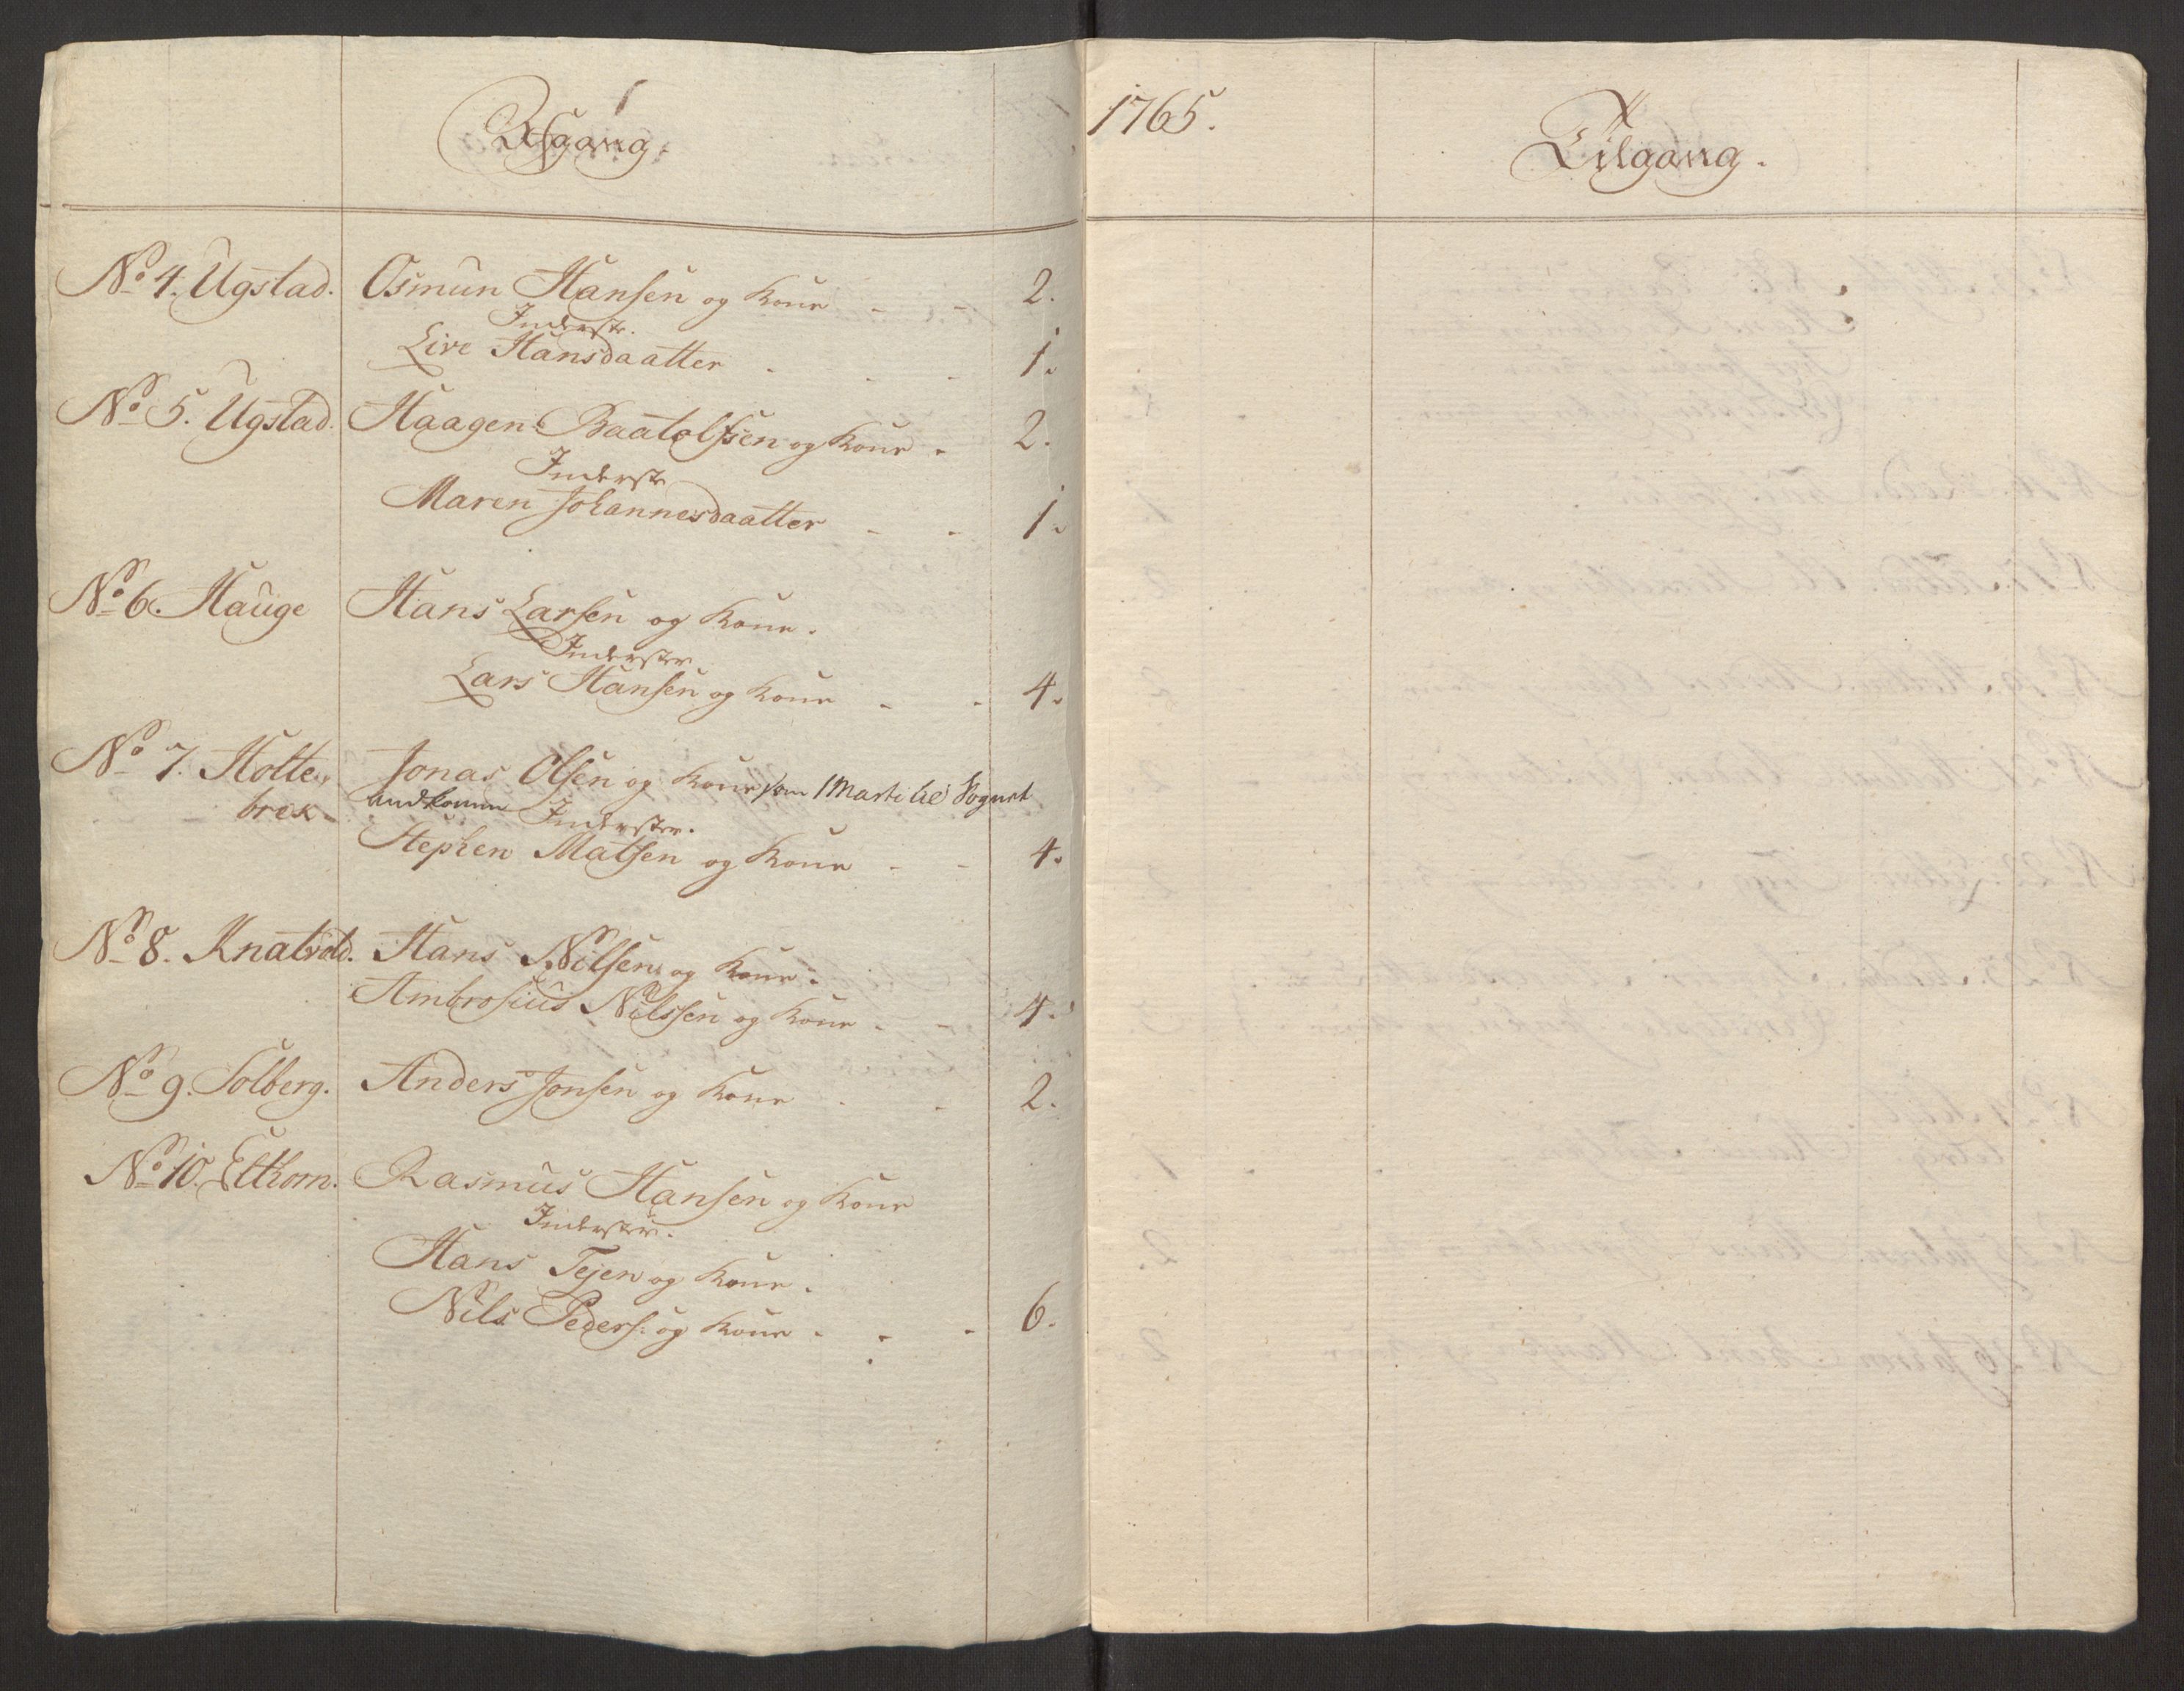 Afgang.
No 4. Ugstad. Osmun Hansen og Kone - - 2.
Inderste.
Live Hansdaatter - - - 1.
No 5. Ugstad. Haagen Baatolfsen og Kone - 2.
Inderste
Maren Johannesdaatter - - 1.
No 6. Hauge Hans Larsen og Kone.
Inderster
Lars Hansen og Kone - - 4.
No 7. Holte- Jonas Olsen og Kone som 1 Marti til Sognet
brek. indkomm Inderster.
Stephen Matsen og Kone - - 4.
No 8. Knatvold. Hans Nilsen og Kone.
Ambrosius Nilssen og Kone - - 4.
No 9. Solberg. Anders Jonsen og Kone - - 2.
No 10. Elthorn. Rasmus Hansen og Kone
Inderster.
Hans Tejen og Kone.
Nils Peders: og Kone - - - 6.
1765.
Tilgang.